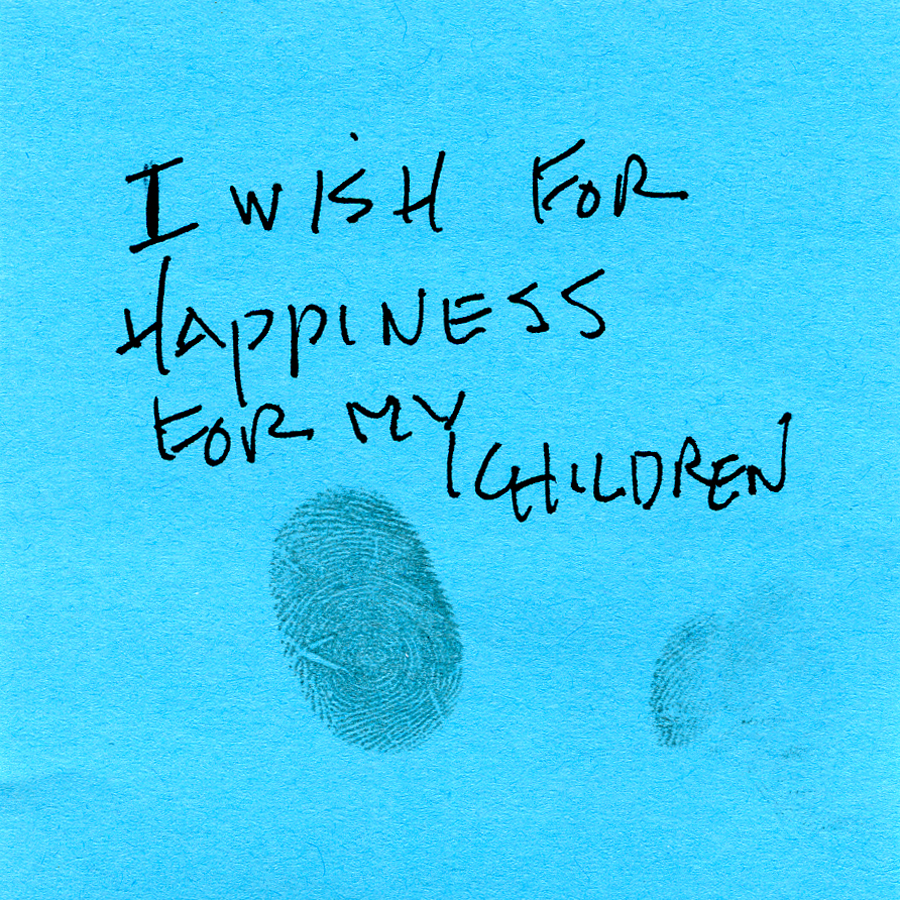 I WISH FOR
HAPPINESS
FOR MY CHILDREN